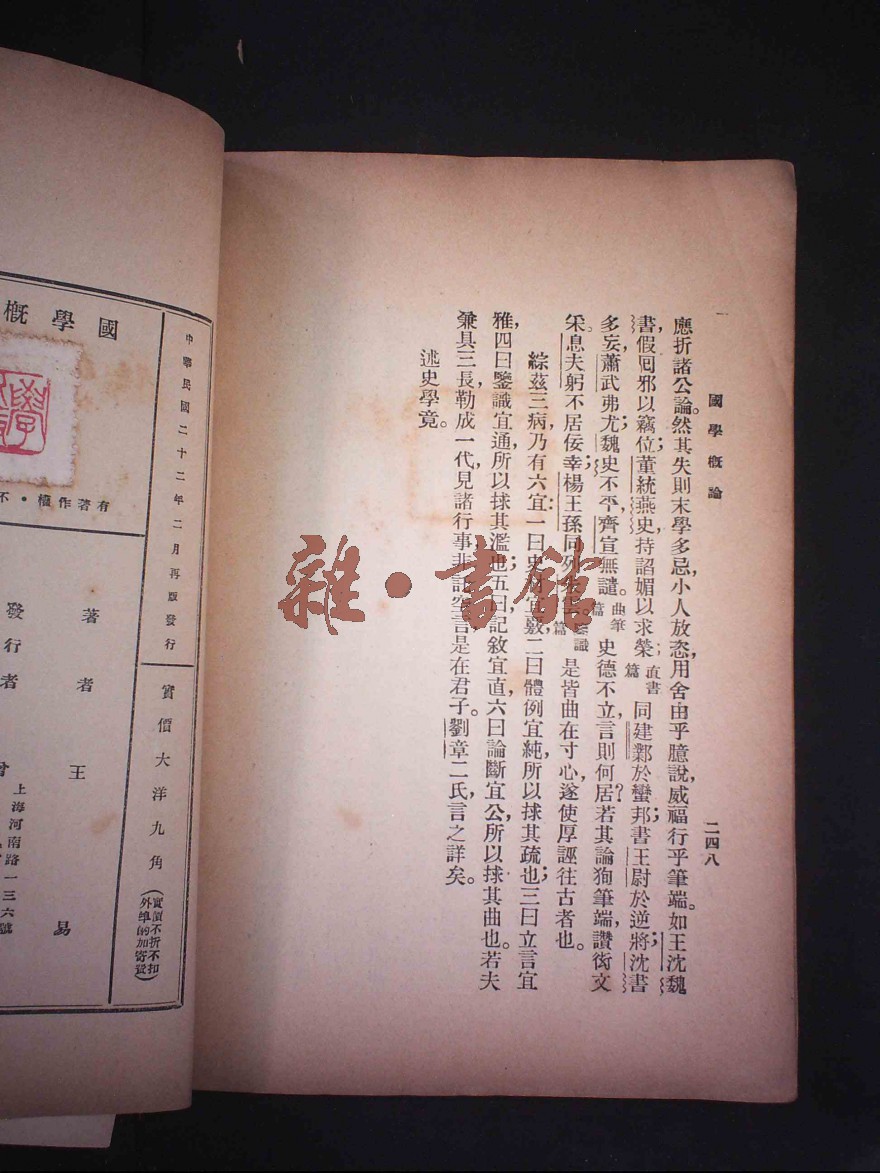 國學概論
二四八
應折諸公論。然其失則末學多忌,小人放恣,用舍由乎臆說,威福行乎筆端。如王沈魏
書,假回邪以竊位;董統燕史,持諂媚以求榮;直書篇同建鄴於蠻邦;書王尉於逆將;沈書
多妄,蕭武弗尤;魏史不平,齊宣無譴。曲筆篇史德不立,言則何居?若其論狥筆端,讚衒文
采。息夫躬不居佞幸;楊王孫同列。識篇是皆曲在寸心,遂使厚誣往古者也。
綜茲三病,乃有六宜:一曰史宜覈,二曰體例宜純,所以捄其疏也;三曰立言宜
雅,四曰鑒識宜通,所以捄其濫也;五曰記敘宜直,六曰論斷宜公,所以捄其曲也。若夫
兼具三長,勒成一代,見諸行事,非託空言,是在君子。劉章二氏,言之詳矣。
述史學竟。
中華民國二十二年二月再版發行
實價大洋九角
(實價不折不扣
外埠酌加寄費)
國學概
有著作權・不
著者 王易
發行者 曾
上海河南路一三六號
雜・書館